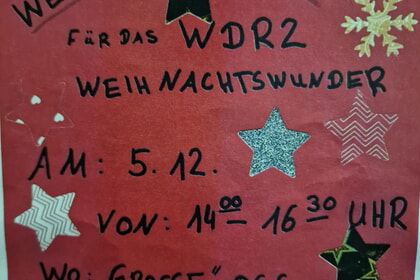 FÜR DAS WDR2
WEIHNACHTSWUNDER
AM: 5.12.
VON: 14⁰⁰ - 16³⁰ UHR
WO: